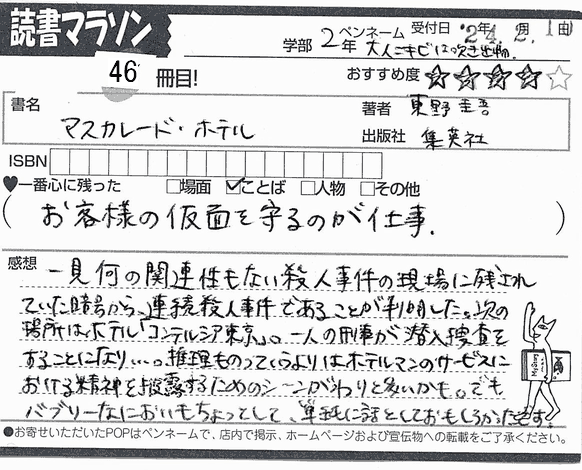 読書マラソン
学部 2年 ペンネーム 大人ニキビは吹き出物. 受付日 '24年 2月 1日
46 冊目!
おすすめ度 ★★★★☆
書名 マスカレード・ホテル
著者 東野圭吾
出版社 集英社
ISBN
♥一番心に残った □場面 ☑ことば □人物 □その他
(お客様の仮面を守るのが仕事.)
感想 一見何の関連性もない殺人事件の現場に残され
ていた暗号から、連続殺人事件であることが判明した。次の
場所はホテル「コンテルシア東京」。一人の刑事が潜入捜査を
することになり…。推理ものっていうよりはホテルマンのサービスに
おける精神を披露するためのシーンがわりと多いかも。でも
バブリーなにおいもちょっとして、単純に話としておもしろかったです。
●お寄せいただいたPOPはペンネームで、店内で掲示、ホームページおよび宣伝物への転載をご了承ください。